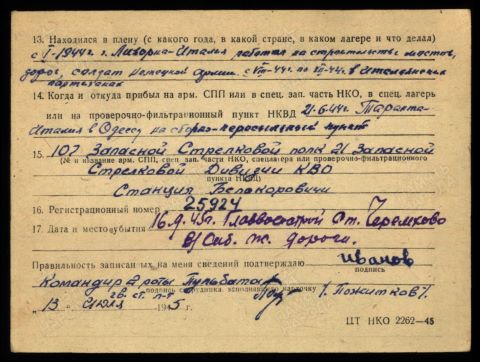 13. Находился в плену (с какого года, в какой стране, в каком лагере и что делал)
с I-1944 г. г. Ливорна-Италья работал на строительстве мостов,
дорог, солдат Немецкой Армии. с VIII-44г по XII-44г в Итальянских
партизанах
14. Когда и откуда прибыл на арм. СПП или в спец. зап. часть НКО, в спец. лагерь
или на проверочно-фильтрационный пункт НКВД 21-6.44г. Таранта-
Италия в Одессу на сборно-пересыльный пункт
15. 107 Запасной Стрелковой полк 21 Запасной
(№ и название арм. СПП, спец. зап. части НКО, спецлагеря или проверочно-фильтрационного
Стрелковой Дивизии КВО
пункта НКВД)
Станция Белакоровичи
16. Регистрационный номер 25924
17. Дата и место убытия 16.9.45г. Главвостстрой Ст. Черемхово
В/Сиб. ж. дороги.
Правильность записанных на меня сведений подтверждаю Иванов
подпись
Командир 2 роты Пульбата
подпись сотрудника, заполнявшего карточку
гв. ст. л-т /. Пожитков /.
„13" июля 1945 г.
ЦТ НКО 2262—45